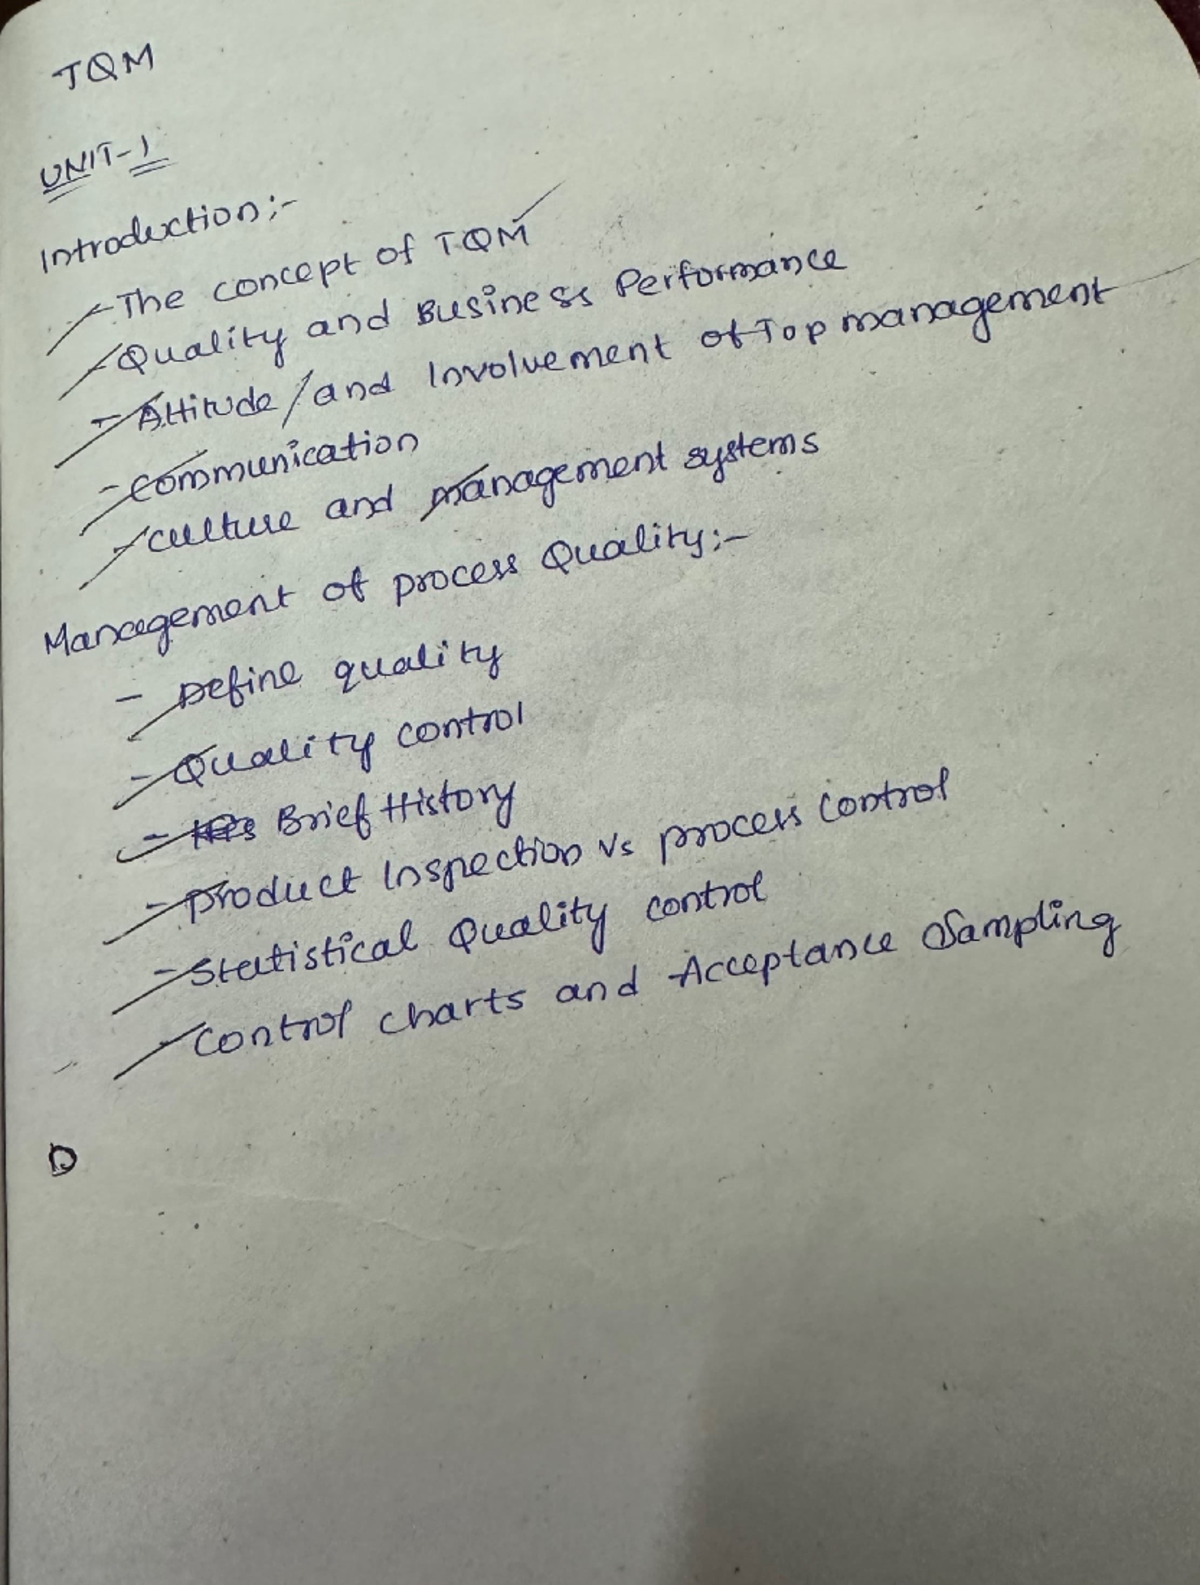 TQM
UNIT-1
Introduction:-
- The concept of TQM
- Quality and Business Performance
- Attitude / and Involvement of Top management
- communication
- culture and management systems
Management of process Quality:-
- Define quality
- Quality control
- Brief History
- product Inspection vs process control
- Statistical Quality control
- control charts and Acceptance Sampling